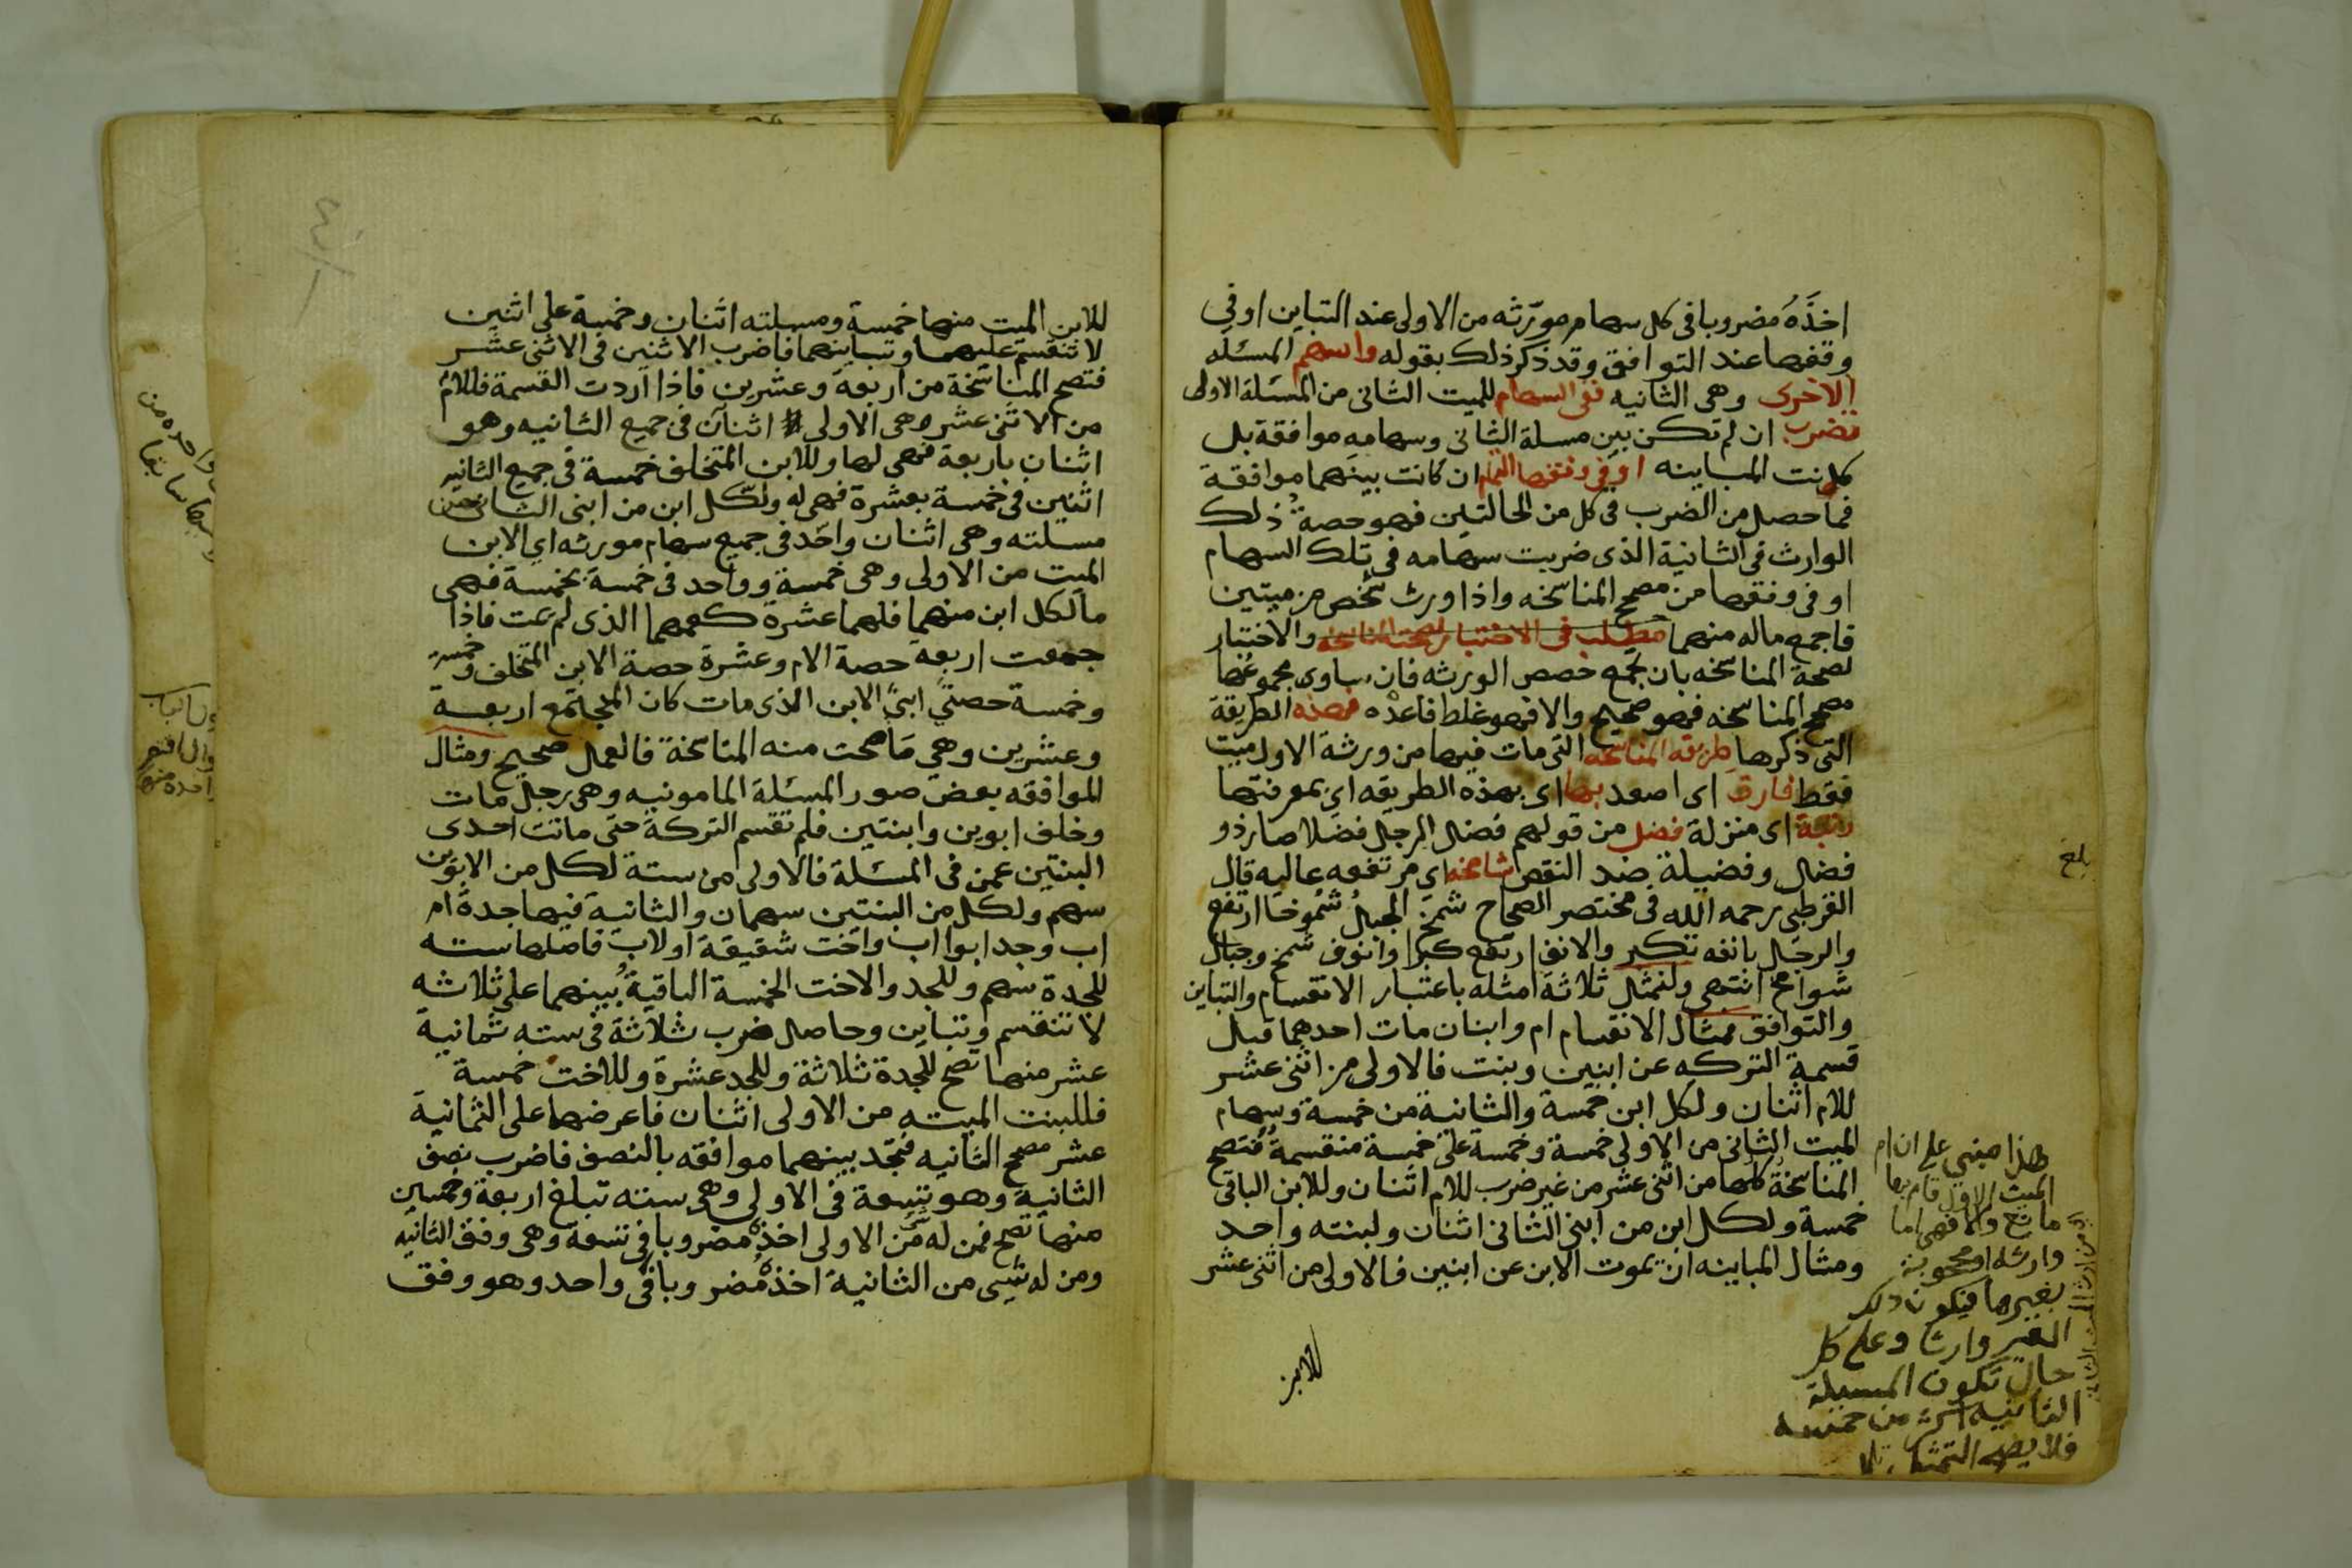 اخذه مضروبا في كل سهام مورثه من الاولى عند التباين او في
وفقها عند التوافق وقد ذكر ذلك بقوله واسهم المسئله
الاخرى وهي الثانيه ففي السهام للميت الثاني من المسئلة الاولى
تضرب ان لم تكن بين مسلة الثاني وسهامه موافقة بل
كانت المباينه او في وفقها ان كانت بينهما موافقة
فما حصل من الضرب في كل من الحالتين فهو حصة ذلك
الوارث في الثانية الذى ضربت سهامه في تلك السهام
او في وفقها من مصح المناسخه واذا ورث شخص من ميتين
فاجمع ماله منهما مطلب في الاختبار لصحة المناسخه والاختبار
لصحة المناسخه بان تجمع حصص الورثه فان ساوى مجموعها
مصحح المناسخه فهو صحيح والا فهو غلط فاعده فهذه الطريقة
التي ذكرها طريقه المناسخه التي مات فيها من ورثة الاول ميت
فقط فارق اى اصعد بها اى بهذه الطريقه اي بمعرفتها
رتبة اى منزلة فضل من قولهم فضل الرجل فضلا صار ذو
فضل وفضيلة ضد النقص شامخه اي مرتفعه عاليه قال
القرطبي رحمه الله في مختصر الصحاح شمخ الجبل شموخا ارتفع
والرجل بانفه تكبر والانف ارتفع كبرا وانوف شمخ وجبال
شوامخ انتهى ولنمثل ثلاثة امثله باعتبار الانقسام والتباين
والتوافق مثال الانقسام ام وابنان مات احدهما قبل
قسمة التركه عن ابنين وبنت فالاولى من اثنى عشر
للام اثنان ولكل ابن خمسة والثانية من خمسة وسهام
الميت الثاني من الاولى خمسة وخمسة على خمسة منقسمة فتصح
المناسخة كلها من اثنى عشر من غير ضرب للام اثنان وللابن الباقى
خمسة ولكل ابن من ابني الثاني اثنان ولبنته واحد
ومثال المباينه ان يموت الابن عن ابنين فالاولى من اثنى عشر
للابن
بلغ
هذا مبني على ان ام
الميت الاول قام بها
مانع والا فهي اما
وارثه او محجوبة
بغيرها فيكون ذلك
الغير وارثا وعلى كل
حال تكون المسيلة
الثانيه اكثر من خمسه
فلا يصح التمثيل
للابن الميت منها خمسة ومسلته اثنان وخمسة على اثنين
لا تنقسم عليهما وتباينهما فاضرب الاثنين في الاثنى عشر
فتصح المناسخة من اربعة وعشرين فاذا اردت القسمة فللام
من الاثنى عشر وهي الاولى اثنان في جميع الثانيه وهو
اثنان باربعة فهي لها وللابن المتخلف خمسة في جميع الثانيه
اثنين في خمسة بعشرة فهي له ولكل ابن من ابني الثاني من
مسلته وهي اثنان واحد في جميع سهام مورثه اي الابن
الميت من الاولى وهي خمسة وواحد في خمسة بخمسة فهي
ما لكل ابن منهما فلهما عشرة كعمهما الذى لم يمت فاذا
جمعت اربعة حصة الام وعشرة حصة الابن المتخلف وخمسة
وخمسة حصتي ابني الابن الذى مات كان المجتمع اربعة
وعشرين وهي ما صحت منه المناسخة فالعمل صحيح ومثال
الموافقه بعض صور المسئلة المامونيه وهي رجل مات
وخلف ابوين وابنتين فلم تقسم التركة حتى ماتت احدى
البنتين عمن في المسئلة فالاولى من ستة لكل من الابوين
سهم ولكل من البنتين سهمان والثانية فيها جدة ام
اب وجد ابو اب واخت شقيقة او لاب فاصلها سته
للجدة سهم وللجد والاخت الخمسة الباقية بينهما على ثلاثه
لا تنقسم وتباين وحاصل ضرب ثلاثة في سته ثمانية
عشر منها تصح للجدة ثلاثة وللجد عشرة وللاخت خمسة
فللبنت الميته من الاولى اثنان فاعرضها على الثمانية
عشر مصحح الثانيه فتجد بينهما موافقه بالنصف فاضرب نصف
الثانية وهو تسعة في الاولى وهي سته تبلغ اربعة وخمسين
منها تصح فمن له من الاولى اخذه مضروبا في تسعة وهي وفق الثانيه
ومن له شيى من الثانية اخذه مضروبا في واحد وهو وفق